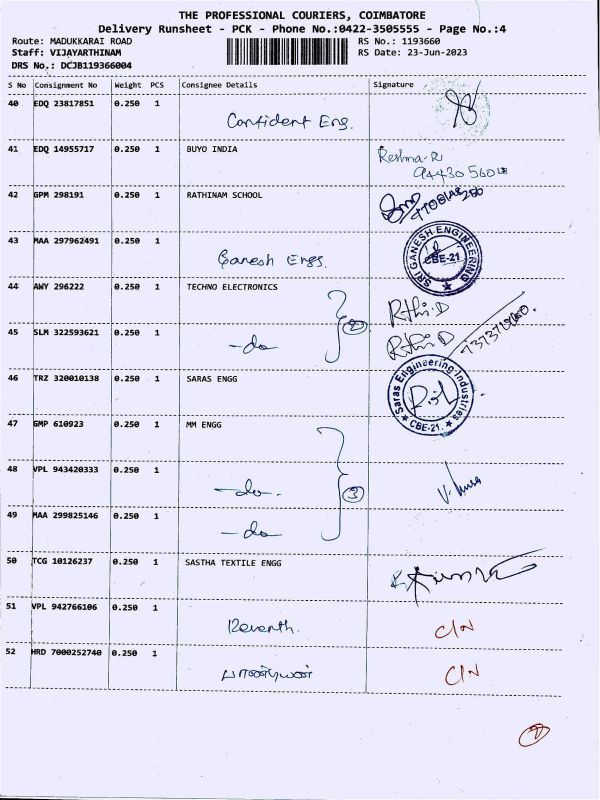 THE PROFESSIONAL COURIERS, COIMBATORE
Delivery Runsheet - PCK - Phone No.:0422-3505555 - Page No.:4
Route: MADUKKARAI ROAD
Staff: VIJAYARTHINAM
DRS No.: DCJB119366004
RS No.: 1193660
RS Date: 23-Jun-2023
S No Consignment No Weight PCS Consignee Details Signature
40 EDQ 23817851 0.250 1
Confident Eng.
41 EDQ 14955717 0.250 1 BUYO INDIA
Reshma.R
42 GPM 298191 0.250 1 RATHINAM SCHOOL
43 MAA 297962491 0.250 1
Ganesh Engg.
SRI GANESH ENGINEERING
CBE-21
44 AWY 296222 0.250 1 TECHNO ELECTRONICS
Rthi.D
2
45 SLM 322593621 0.250 1
-do
Rthi.D
46 TRZ 320010138 0.250 1 SARAS ENGG
Saras Engineering Industries
CBE-21.
47 GMP 610923 0.250 1 MM ENGG
48 VPL 943420333 0.250 1
-do-
3
49 MAA 299825146 0.250 1
-do
50 TCG 10126237 0.250 1 SASTHA TEXTILE ENGG
51 VPL 942766106 0.250 1
Revanth.
C/N
52 HRD 7000252740 0.250 1
C/N